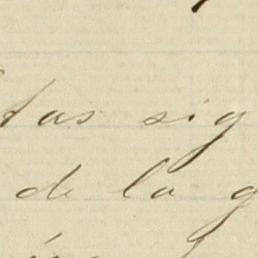 tas sig
de la g